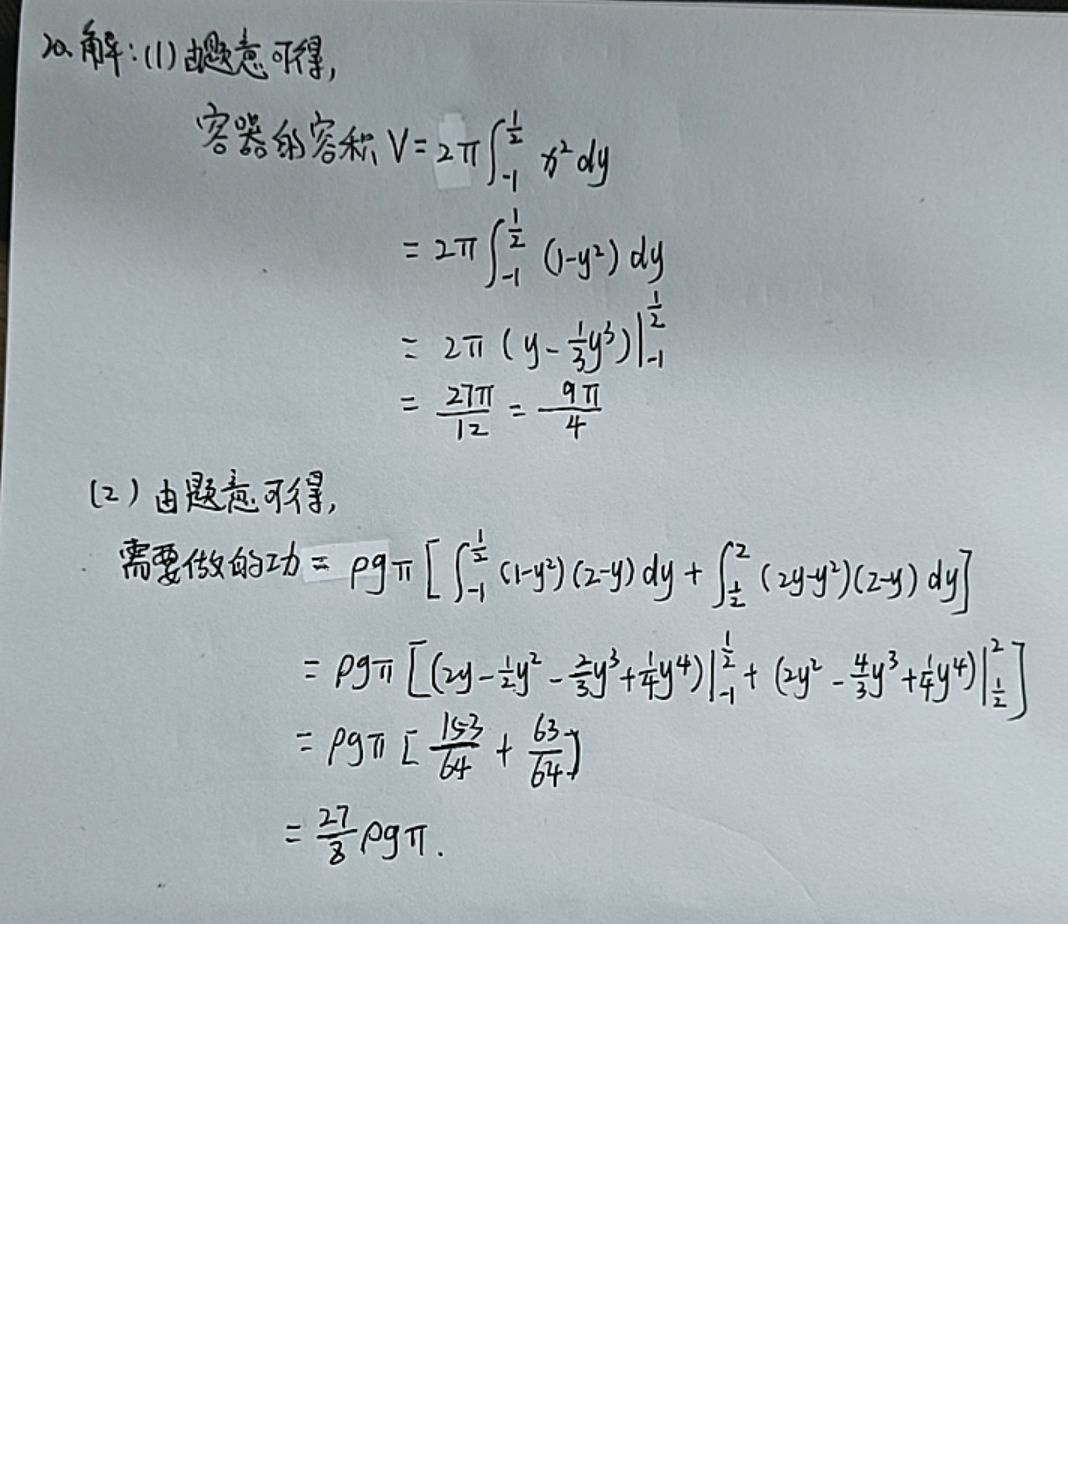 20.解:(1)由题意可得,
容器的容积 V=2π∫_{-1}^{1/2} x² dy
=2π∫_{-1}^{1/2} (1-y²) dy
=2π(y-1/3y³)|_{-1}^{1/2}
=27π/12=9π/4
(2)由题意可得,
需要做的功=ρgπ[∫_{-1}^{1/2}(1-y²)(2-y)dy+∫_{1/2}^{2}(2y-y²)(2-y)dy]
=ρgπ[(2y-1/2y²-2/3y³+1/4y⁴)|_{-1}^{1/2}+(2y²-4/3y³+1/4y⁴)|_{1/2}^{2}]
=ρgπ[153/64+63/64]
=27/8ρgπ.